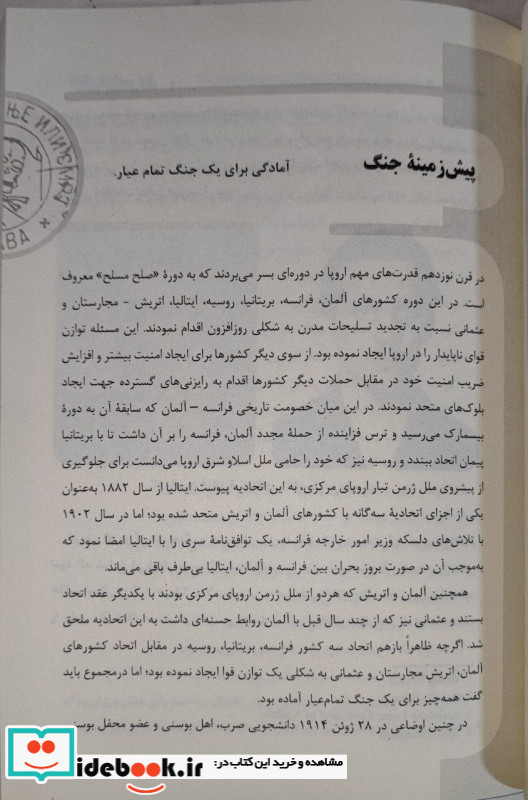 پیش‌زمینهٔ جنگ
آمادگی برای یک جنگ تمام عیار.
در قرن نوزدهم قدرت‌های مهم اروپا در دوره‌ای بسر می‌بردند که به دورهٔ «صلح مسلح» معروف
است. در این دوره کشورهای آلمان، فرانسه، بریتانیا، روسیه، ایتالیا، اتریش - مجارستان و
عثمانی نسبت به تجدید تسلیحات مدرن به شکلی روزافزون اقدام نمودند. این مسئله توازن
قوای ناپایدار را در اروپا ایجاد نموده بود. از سوی دیگر کشورها برای ایجاد امنیت بیشتر و افزایش
ضریب امنیت خود در مقابل حملات دیگر کشورها اقدام به رایزنی‌های گسترده جهت ایجاد
بلوک‌های متحد نمودند. در این میان خصومت تاریخی فرانسه – آلمان که سابقهٔ آن به دورهٔ
بیسمارک می‌رسید و ترس فزاینده از حملهٔ مجدد آلمان، فرانسه را بر آن داشت تا با بریتانیا
پیمان اتحاد ببندد و روسیه نیز که خود را حامی ملل اسلاو شرق اروپا می‌دانست برای جلوگیری
از پیشروی ملل ژرمن تبار اروپای مرکزی، به این اتحادیه پیوست. ایتالیا از سال ۱۸۸۲ به‌عنوان
یکی از اجزای اتحادیهٔ سه‌گانه با کشورهای آلمان و اتریش متحد شده بود؛ اما در سال ۱۹۰۲
با تلاش‌های دلسکه وزیر امور خارجه فرانسه، یک توافق‌نامهٔ سری را با ایتالیا امضا نمود که
به‌موجب آن در صورت بروز بحران بین فرانسه و آلمان، ایتالیا بی‌طرف باقی می‌ماند.
همچنین آلمان و اتریش که هردو از ملل ژرمن اروپای مرکزی بودند با یکدیگر عقد اتحاد
بستند و عثمانی نیز که از چند سال قبل با آلمان روابط حسنه‌ای داشت به این اتحادیه ملحق
شد. اگرچه ظاهراً بازهم اتحاد سه کشور فرانسه، بریتانیا، روسیه در مقابل اتحاد کشورهای
آلمان، اتریش مجارستان و عثمانی به شکلی یک توازن قوا ایجاد نموده بود؛ اما درمجموع باید
گفت همه‌چیز برای یک جنگ تمام‌عیار آماده بود.
در چنین اوضاعی در ۲۸ ژوئن ۱۹۱۴ دانشجویی صرب، اهل بوسنی و عضو محفل بوسنی
مشاهده و خرید این کتاب در:
idebook.ir